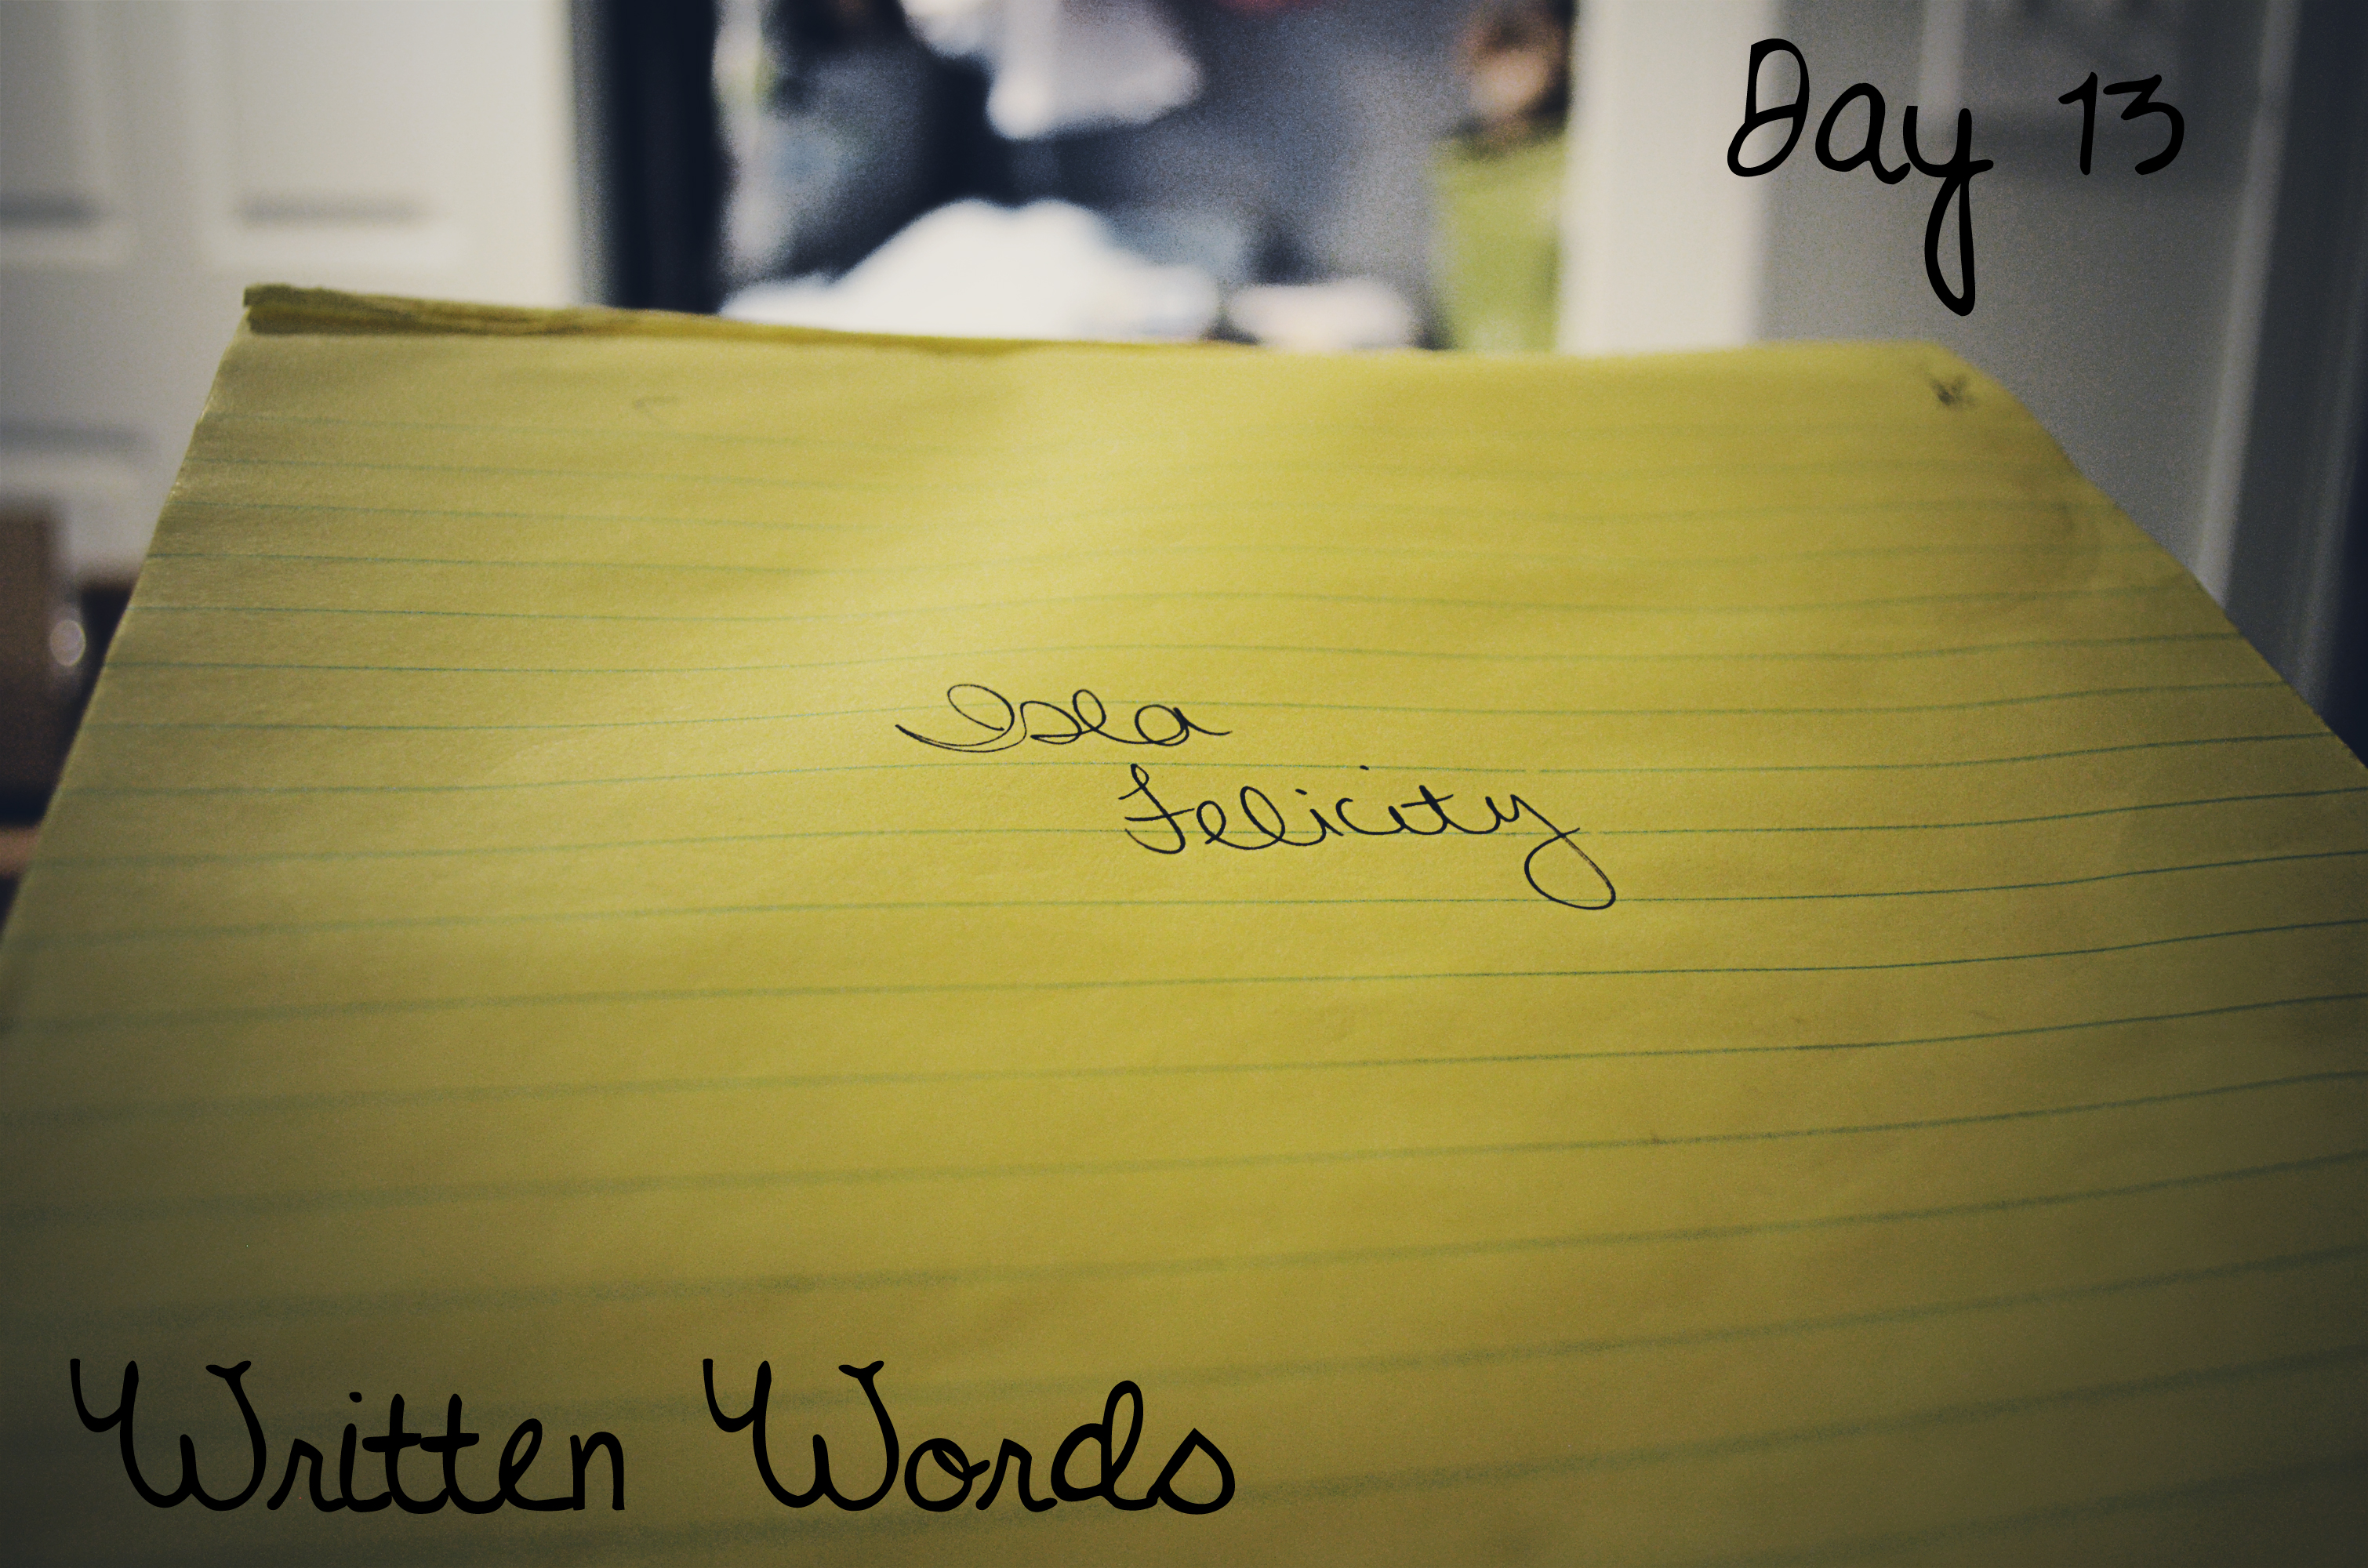 Day 13
Isla
Felicity
Written Words